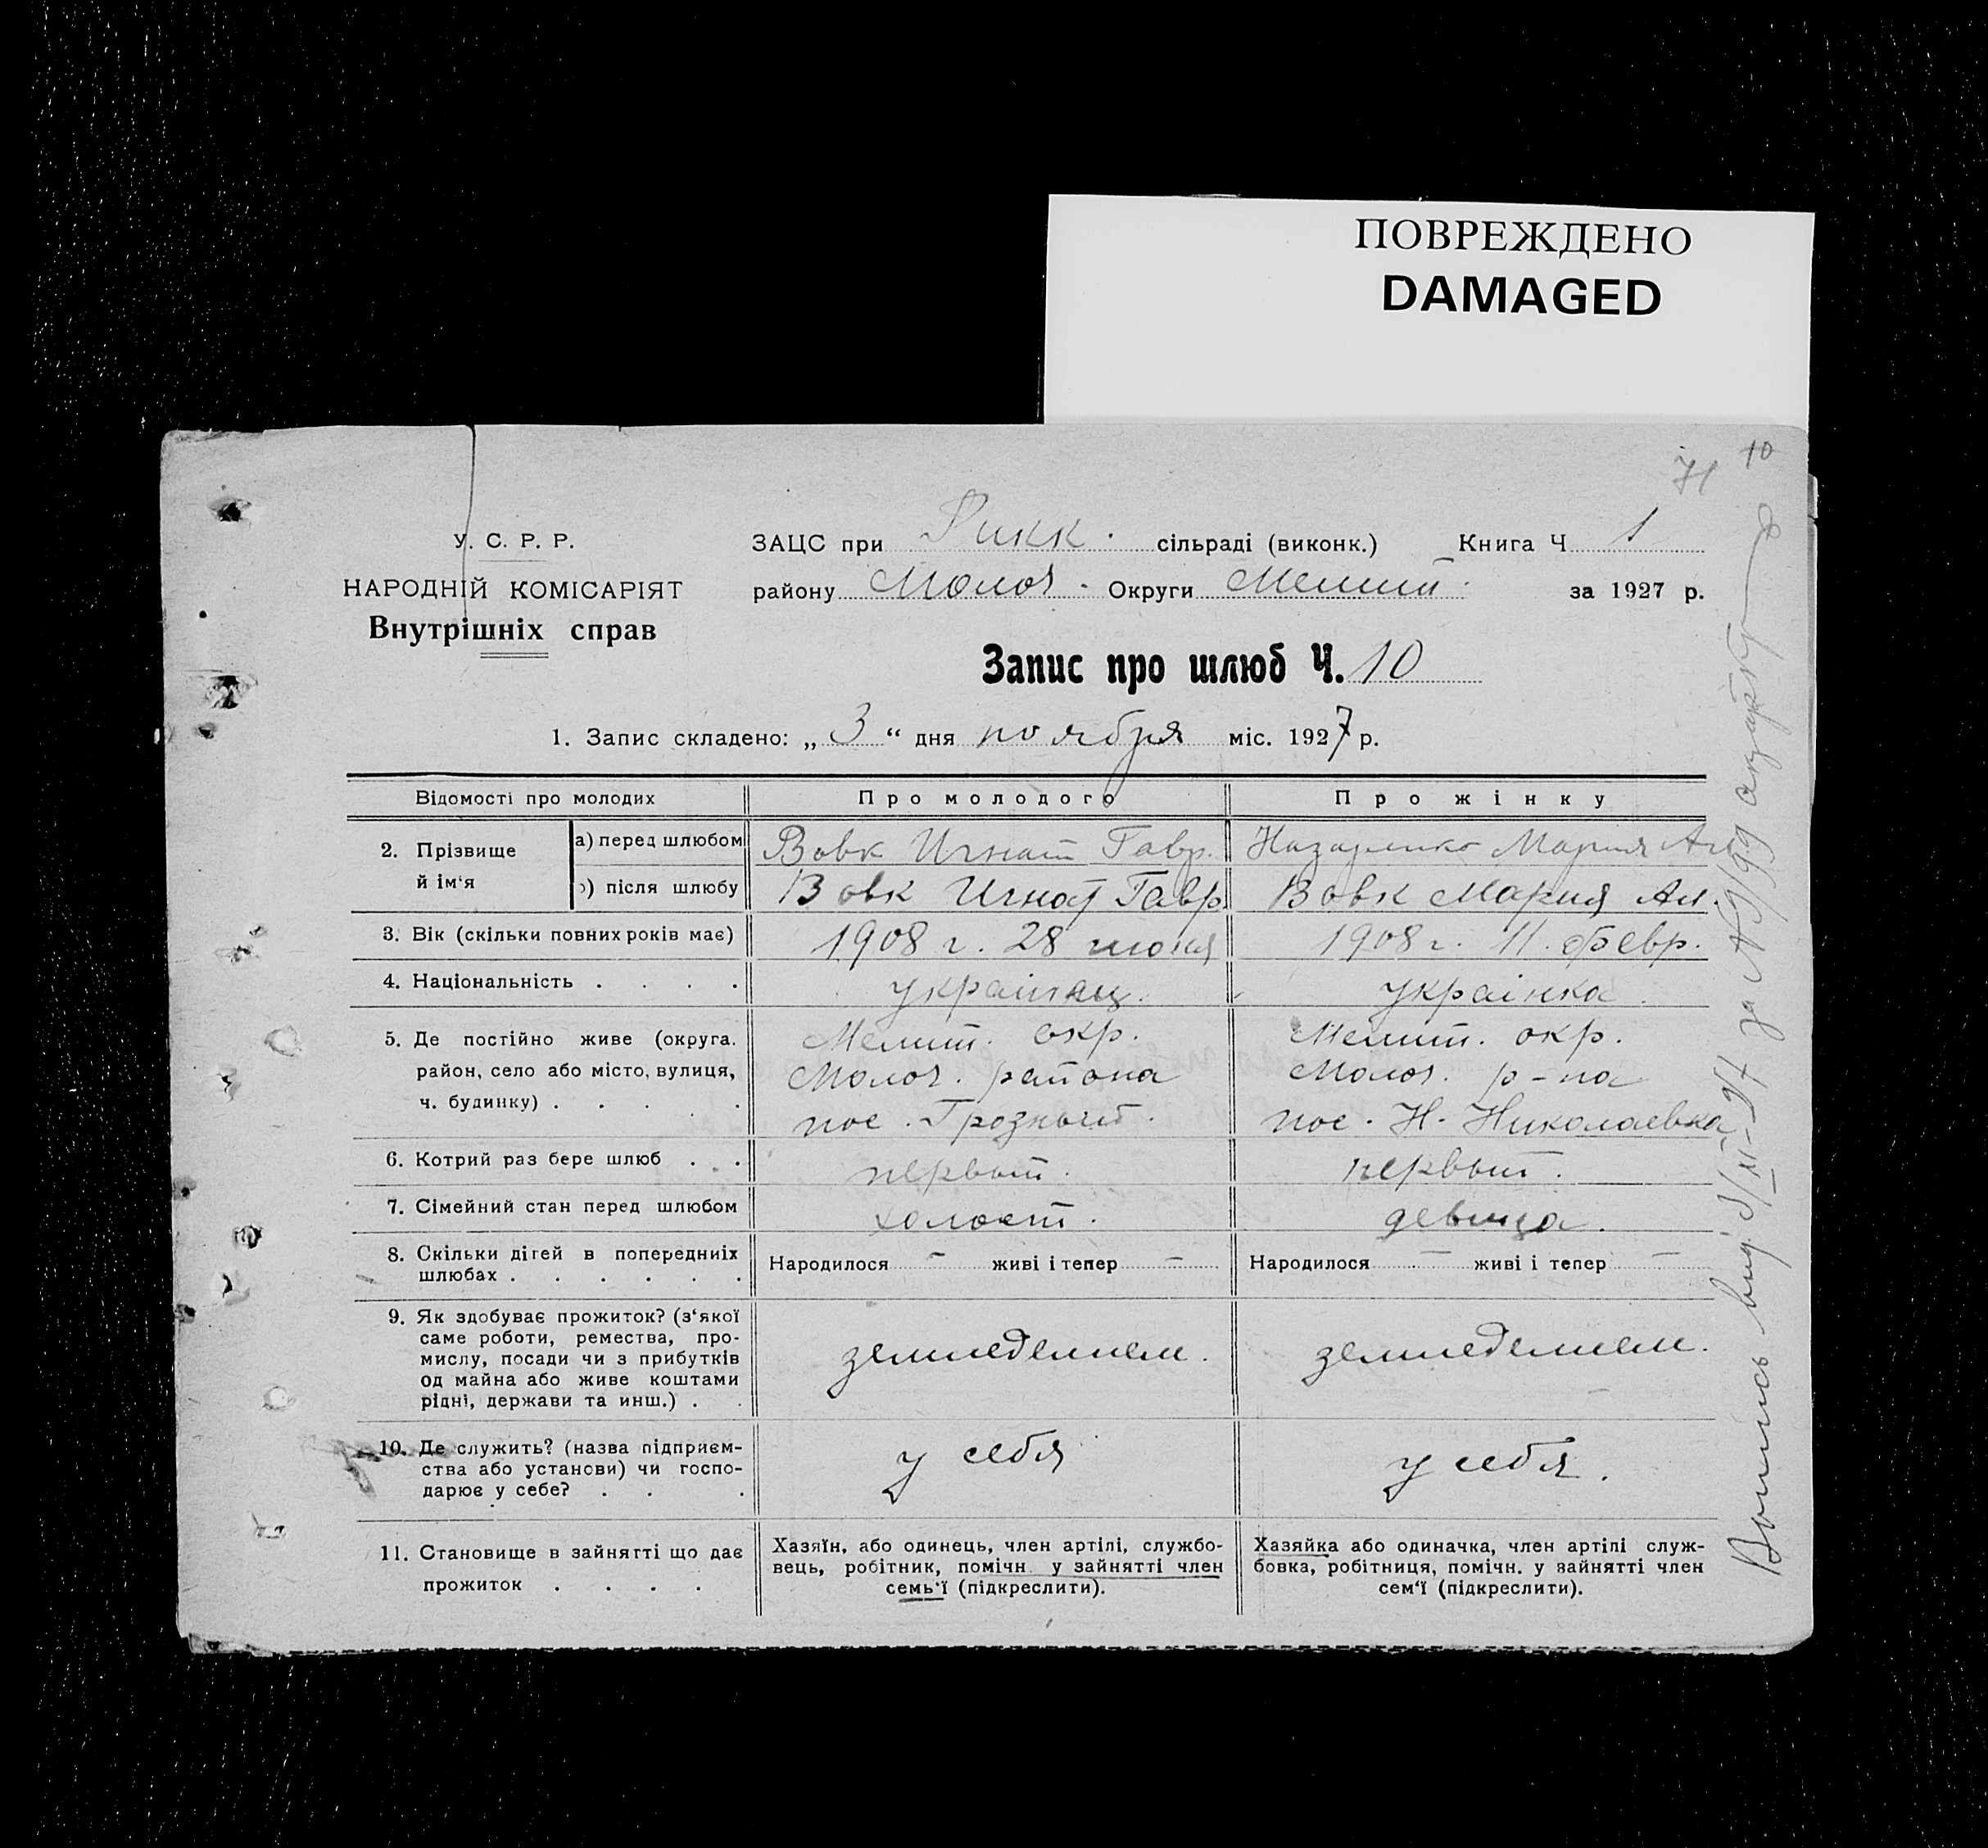 ПОВРЕЖДЕНО
DAMAGED
10
У. С. Р. Р.
НАРОДНІЙ КОМІСАРІЯТ
Внутрішніх справ
ЗАЦС при Рикк. сільраді (виконк.) Книга Ч 1
району Молоч. Округи Мелит. за 1927 р.
Запис про шлюб Ч. 10
1. Запис складено: „ 3 “ дня ноября міс. 1927 р.
Відомості про молодих Про молодого Про жінку
2. Прізвище й ім‘я
а) перед шлюбом Вовк Игнат Гавр. Назаренко Мария Ал
б) після шлюбу Вовк Игнат Гавр Вовк Мария Ал.
3. Вік (скільки повних років має) 1908 г. 28 июня 1908 г. 11. февр.
4. Національність . . . . украінец. украінка.
5. Де постійно живе (округа. Мелит. окр. Мелит. окр.
район, село або місто, вулиця, Молоч. района Молоч. р-на
ч. будинку) . . . . . пос. Грозный. пос. Н. Николаевка
6. Котрий раз бере шлюб . . . первый. первый.
7. Сімейний стан перед шлюбом холост. девица.
8. Скільки дітей в попередниіх шлюбах . . . . . . Народилося – живі і тепер – Народилося – живі і тепер –
9. Як здобуває прожиток? (з‘якої
саме роботи, ремества, про-
мислу, посади чи з прибутків
од майна або живе коштами
рідні, держави та инш.) . .
земледелием. земледелием.
10. Де служить? (назва підприєм-
ства або установи) чи госпо-
дарює у себе? . . .
у себя у себя.
11. Становище в зайнятті що дає
прожиток . . . .
Хазяїн, або одинець, член артілі, службо-
вець, робітник, помічн. у зайнятті член
семь‘ї (підкреслити).
Хазяйка або одиначка, член артілі служ-
бовка, робітниця, помічн. у зайнятті член
сем‘ї (підкреслити).
за №